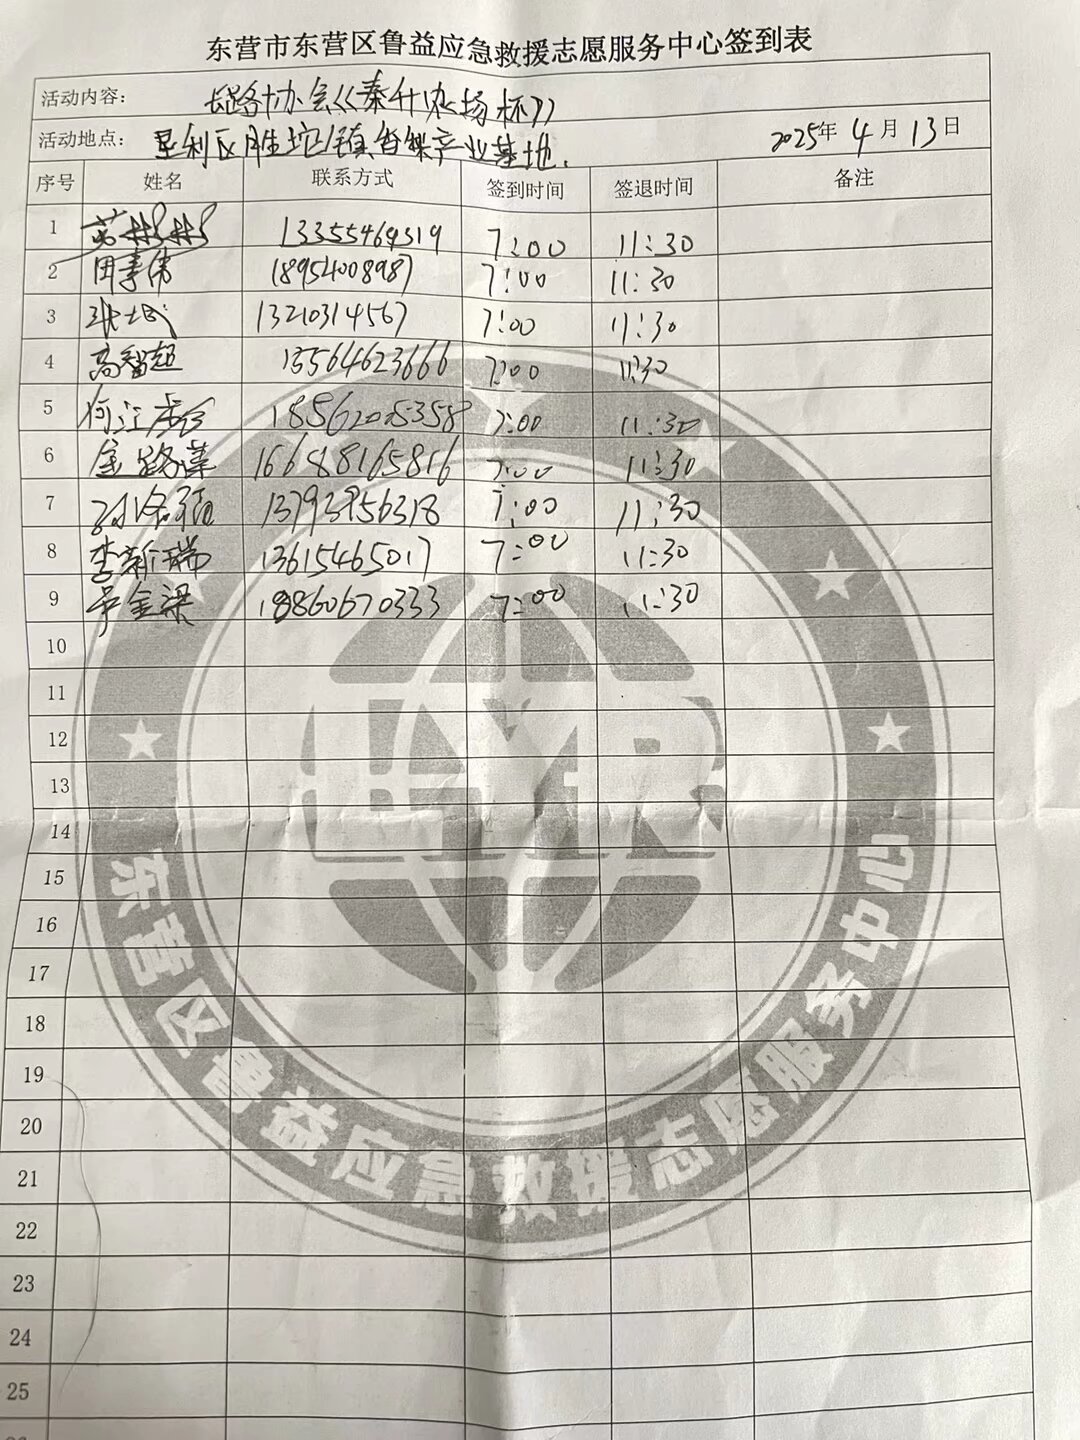 东营市东营区鲁益应急救援志愿服务中心签到表
活动内容： 长跑协会《泰升农场杯》
活动地点： 垦利区胜坨镇香菇产业基地. 2025年 4月 13日
序号 姓名 联系方式 签到时间 签退时间 备注
1 13355469319 7:00 11:30
2 田事伟 18954008987 7:00 11:30
3 张城 13210314567 7:00 11:30
4 高智超 15564623666 7:00 11:30
5 何江 18562005358 7:00 11:30
6 16688165816 7:00 11:30
7 13793956318 7:00 11:30
8 李新瑞 13615465017 7:00 11:30
9 金梁 18860670333 7:00 11:30
10
11
12
13
14
15
16
17
18
19
20
21
22
23
24
25
东营区鲁益应急救援志愿服务中心
LYR